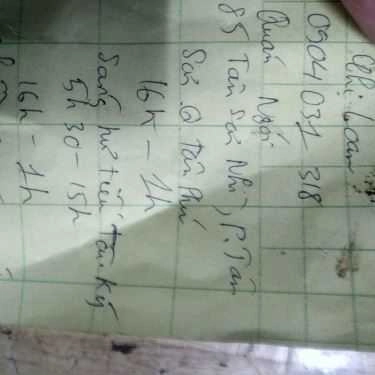 Chị Loan
0904 031 318
Quán Ngói
85 Tân Sơn Nhì, P. Tân
Sơn Q Tân Phú
16h - 1h
Sáng hủ tiếu Tân Kỳ
5h30 - 15h
16h - 1h